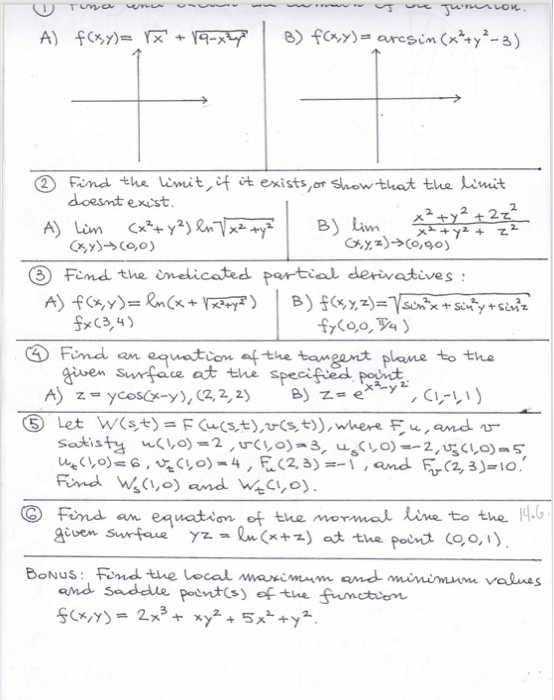 ① Find and the domain of the function.
A) f(x,y) = √x + √9-x²-y²
B) f(x,y) = arcsin (x²+y²-3)
② Find the limit, if it exists, or show that the limit
doesnt exist.
A) lim (x²+y²) ln √x²+y²
(x,y)→(0,0)
B) lim x²+y²+2z² / x²+y²+z²
(x,y,z)→(0,0,0)
③ Find the indicated partial derivatives :
A) f(x,y) = ln(x + √x²+y²)
fx(3,4)
B) f(x,y,z) = √sin²x + sin²y + sin²z
fy(0,0,π/4)
④ Find an equation of the tangent plane to the
given surface at the specified point
A) z = ycos(x-y), (2,2,2)
B) z = e^x²-y², (1,-1,1)
⑤ Let W(s,t) = F(u(s,t),v(s,t)), where F, u, and v
satisfy u(1,0)=2, v(1,0)=3, us(1,0)=-2, vs(1,0)=5,
ut(1,0)=6, vt(1,0)=4, Fu(2,3)=-1, and Fv(2,3)=10.
Find Ws(1,0) and Wt(1,0).
⑥ Find an equation of the normal line to the 14.6.
given surface yz = ln(x+z) at the point (0,0,1).
BONUS: Find the local maximum and minimum values
and saddle point(s) of the function
f(x,y) = 2x³ + xy² + 5x² + y².